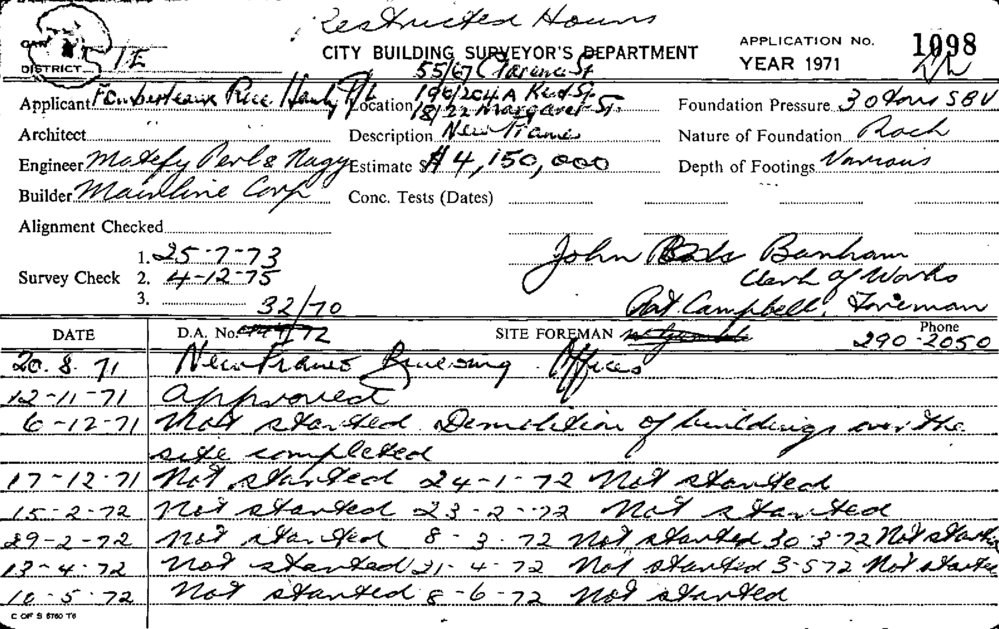 Restricted Hours
CITY BUILDING SURVEYOR'S DEPARTMENT
APPLICATION No. 1098
YEAR 1971
DISTRICT 1E
55/67 Clarence St.
Applicant Fombertaux Rice Hanly P/L Location 196/204A Kent St.
18/22 Margaret St.
Foundation Pressure 30 tons SBV
Architect Description New Frames Nature of Foundation Rock
Engineer Matefy Perl & Nagy Estimate $ $4,150,000 Depth of Footings Various
Builder Mainline Corp Conc. Tests (Dates)
Alignment Checked
1. 25-7-73
Survey Check 2. 4-12-75
3.
John Banham
Clerk of Works
Pat Campbell, Foreman
32/70
DATE D.A. No. 72 SITE FOREMAN Phone
290-2050
20.8.71 New Frames Building Offices
12-11-71 Approved
6-12-71 Not started. Demolition of buildings over the
site completed
17-12-71 Not started 24-1-72 Not started
15-2-72 Not started 23-2-72 Not started
29-2-72 Not started 8-3-72 Not started 30-3-72 Not started
13-4-72 Not started 21-4-72 Not started 3-5-72 Not started
10-5-72 Not started 8-6-72 Not started
C OF S 6760 T6